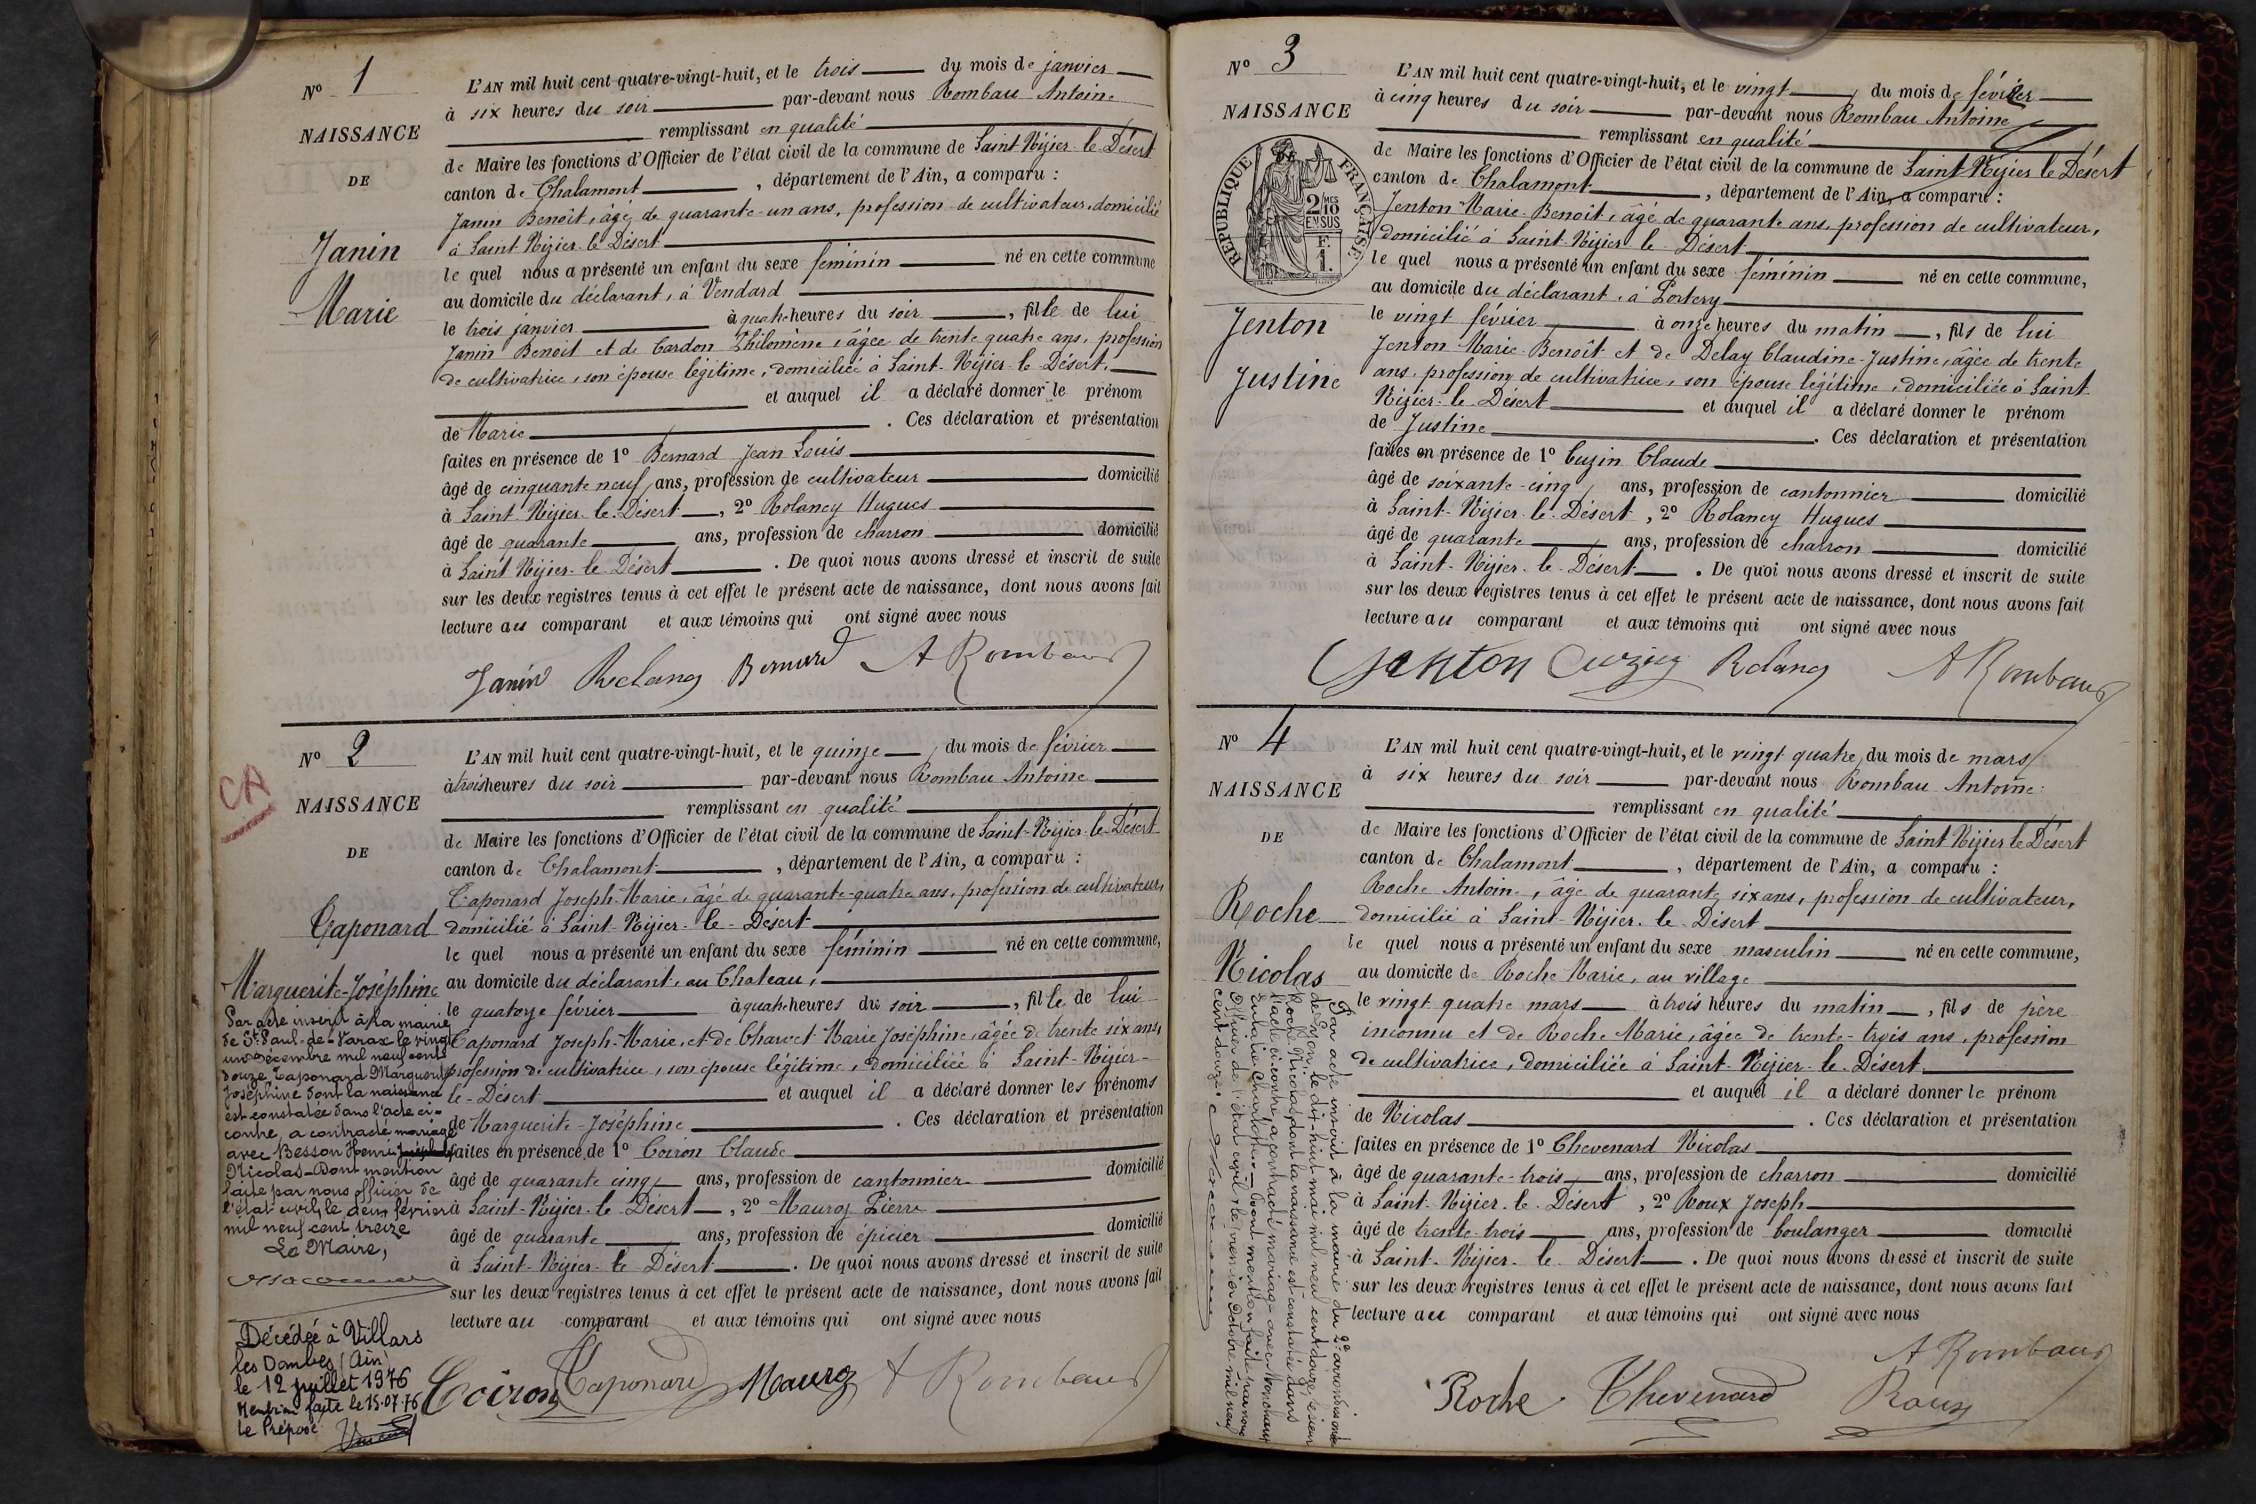 N° 1
NAISSANCE
DE
Janin
Marie
L'AN mil huit cent quatre-vingt-huit, et le trois du mois de janvier
à six heures du soir par-devant nous Rombau Antoine
remplissant en qualité
de Maire les fonctions d'Officier de l'état civil de la commune de Saint Nizier-le-Désert
canton de Chalamont, département de l'Ain, a comparu :
Janin Benoît, âgé de quarante-un ans, profession de cultivateur, domicilié
à Saint Nizier-le-Désert
le quel nous a présenté un enfant du sexe féminin né en cette commune
au domicile du déclarant, à Vendard
le trois janvier à quatre heures du soir, fille de lui
Janin Benoit et de Cardon Philomène, âgée de trente quatre ans, profession
de cultivatrice, son épouse légitime, domiciliée à Saint-Nizier-le-Désert,
et auquel il a déclaré donner le prénom
de Marie. Ces déclaration et présentation
faites en présence de 1° Bernard Jean Louis
âgé de cinquante neuf ans, profession de cultivateur domicilié
à Saint-Nizier-le-Désert, 2° Rolancy Hugues
âgé de quarante ans, profession de charron domicilié
à Saint Nizier-le-Désert. De quoi nous avons dressé et inscrit de suite
sur les deux registres tenus à cet effet le présent acte de naissance, dont nous avons fait
lecture au comparant et aux témoins qui ont signé avec nous
Janin Rolancy Bernard A Rombaud
N° 2
CA
NAISSANCE
DE
Caponard
Marguerite-Joséphine
L'AN mil huit cent quatre-vingt-huit, et le quinze du mois de février
à trois heures du soir par-devant nous Rombau Antoine
remplissant en qualité
de Maire les fonctions d'Officier de l'état civil de la commune de Saint-Nizier-le-Désert
canton de Chalamont, département de l'Ain, a comparu :
Caponard Joseph-Marie, âgé de quarante-quatre ans, profession de cultivateur,
domicilié à Saint-Nizier-le-Désert
le quel nous a présenté un enfant du sexe féminin né en cette commune,
au domicile du déclarant, au Chateau,
le quatorze février à quatre heures du soir, fille de lui
Caponard Joseph-Marie, et de Charvet Marie Joséphine, âgée de trente six ans,
profession de cultivatrice, son épouse légitime, domiciliée à Saint-Nizier-
le-Désert et auquel il a déclaré donner les prénoms
de Marguerite-Joséphine. Ces déclaration et présentation
faites en présence de 1° Coiron Claude
âgé de quarante cinq ans, profession de cantonnier domicilié
à Saint-Nizier-le-Désert, 2° Mauroz Pierre
âgé de quarante ans, profession de épicier domicilié
à Saint-Nizier-le Désert. De quoi nous avons dressé et inscrit de suite
sur les deux registres tenus à cet effet le présent acte de naissance, dont nous avons fait
lecture au comparant et aux témoins qui ont signé avec nous
Coiron Caponard Mauroz A Rombaud
Par acte inscrit à la mairie
de St Paul-de-Varax le vingt
un décembre mil neuf cent
douze Caponard Marguerite
Joséphine dont la naissance
est constatée dans l'acte ci-
contre, a contracté mariage
avec Besson Henri Joseph
Nicolas - Dont mention
faite par nous officier de
l'état-civil, le deux février
mil neuf cent treize
Le Maire,
Décédée à Villars
les Dombes (Ain)
le 12 juillet 1976
Mention faite le 15.07.76
le Préposé
N° 3
NAISSANCE
RÉPUBLIQUE FRANÇAISE
2 MES 10 EN SUS
F. 1.
Jenton
Justine
L'AN mil huit cent quatre-vingt-huit, et le vingt du mois de février
à cinq heures du soir par-devant nous Rombau Antoine
remplissant en qualité
de Maire les fonctions d'Officier de l'état civil de la commune de Saint-Nizier le Désert
canton de Chalamont, département de l'Ain, a comparu :
Jenton Marie-Benoît, âgé de quarante ans, profession de cultivateur,
domicilié à Saint-Nizier-le-Désert
le quel nous a présenté un enfant du sexe féminin né en cette commune,
au domicile du déclarant, à Portery
le vingt février à onze heures du matin, fils de lui
Jenton Marie-Benoît et de Delay Claudine-Justine, âgée de trente
ans, profession de cultivatrice, son épouse légitime, domiciliée à Saint
Nizier-le-Désert et auquel il a déclaré donner le prénom
de Justine. Ces déclaration et présentation
faites en présence de 1° Cuzin Claude
âgé de soixante-cinq ans, profession de cantonnier domicilié
à Saint-Nizier-le-Désert, 2° Rolancy Hugues
âgé de quarante ans, profession de charron domicilié
à Saint-Nizier-le-Désert. De quoi nous avons dressé et inscrit de suite
sur les deux registres tenus à cet effet le présent acte de naissance, dont nous avons fait
lecture au comparant et aux témoins qui ont signé avec nous
Jenton Cuzin Rolancy A Rombaud
N° 4
NAISSANCE
DE
Roche
Nicolas
L'AN mil huit cent quatre-vingt-huit, et le vingt quatre du mois de mars
à six heures du soir par-devant nous Rombau Antoine
remplissant en qualité
de Maire les fonctions d'Officier de l'état civil de la commune de Saint Nizier le Désert
canton de Chalamont, département de l'Ain, a comparu :
Roche Antoine, âgé de quarante six ans, profession de cultivateur,
domicilié à Saint-Nizier-le-Désert
le quel nous a présenté un enfant du sexe masculin né en cette commune,
au domicile de Roche Marie, au village
le vingt quatre mars à trois heures du matin, fils de père
inconnu et de Roche Marie, âgée de trente-trois ans, profession
de cultivatrice, domiciliée à Saint-Nizier-le-Désert
et auquel il a déclaré donner le prénom
de Nicolas. Ces déclaration et présentation
faites en présence de 1° Chevenard Nicolas
âgé de quarante-trois ans, profession de charron domicilié
à Saint-Nizier-le-Désert, 2° Roux Joseph
âgé de trente-trois ans, profession de boulanger domicilié
à Saint-Nizier-le-Désert. De quoi nous avons dressé et inscrit de suite
sur les deux registres tenus à cet effet le présent acte de naissance, dont nous avons fait
lecture au comparant et aux témoins qui ont signé avec nous
A Rombaud
Roche Chevenard Roux
Par acte inscrit à la mairie du 2e arrondissement
de Lyon, le dix-huit mai mil neuf cent douze, le sieur
Roche Nicolas, dont la naissance est constatée dans
l'acte ci-contre, a contracté mariage avec
Dont mention faite par nous
Officier de l'état civil, le premier octobre mil neuf
cent douze